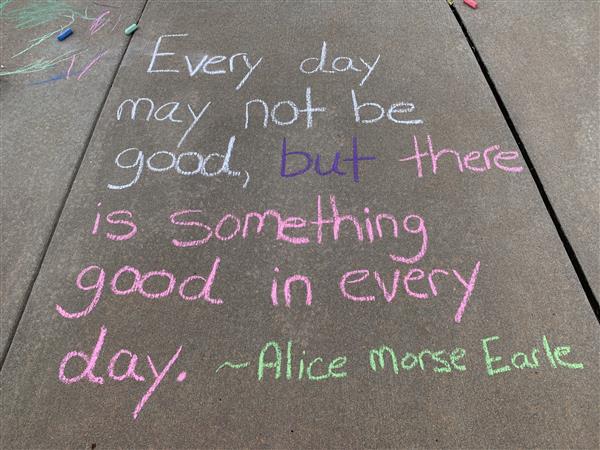 Every day
may not be
good, but there
is something
good in every
day. ~Alice Morse Earle